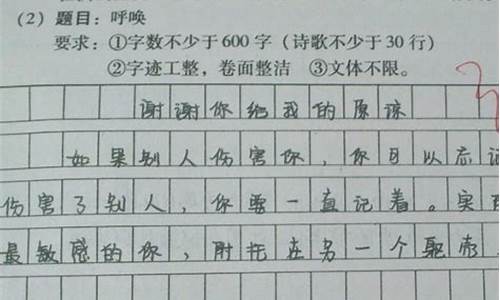 (2) 题目：呼唤
要求：①字数不少于600字（诗歌不少于30行）
②字迹工整，卷面整洁 ③文体不限。
谢谢你给我的原谅
如果别人伤害你，你可以忘记
伤害了别人，你要一直记着。实
最敏感的你，托在另一个躯壳